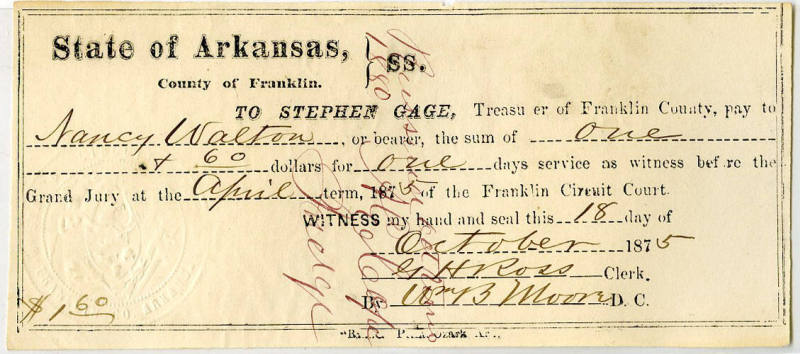 State of Arkansas, } ss.
County of Franklin.
TO STEPHEN GAGE, Treasurer of Franklin County, pay to
Nancy Walton, or bearer, the sum of one
+ 60 dollars for one days service as witness before the
Grand Jury at the April term, 1875 of the Franklin Circuit Court.
WITNESS my hand and seal this 18 day of
October 1875
G H Ross Clerk.
By Wm B Moore D. C.
$1 60
Ozark
1880